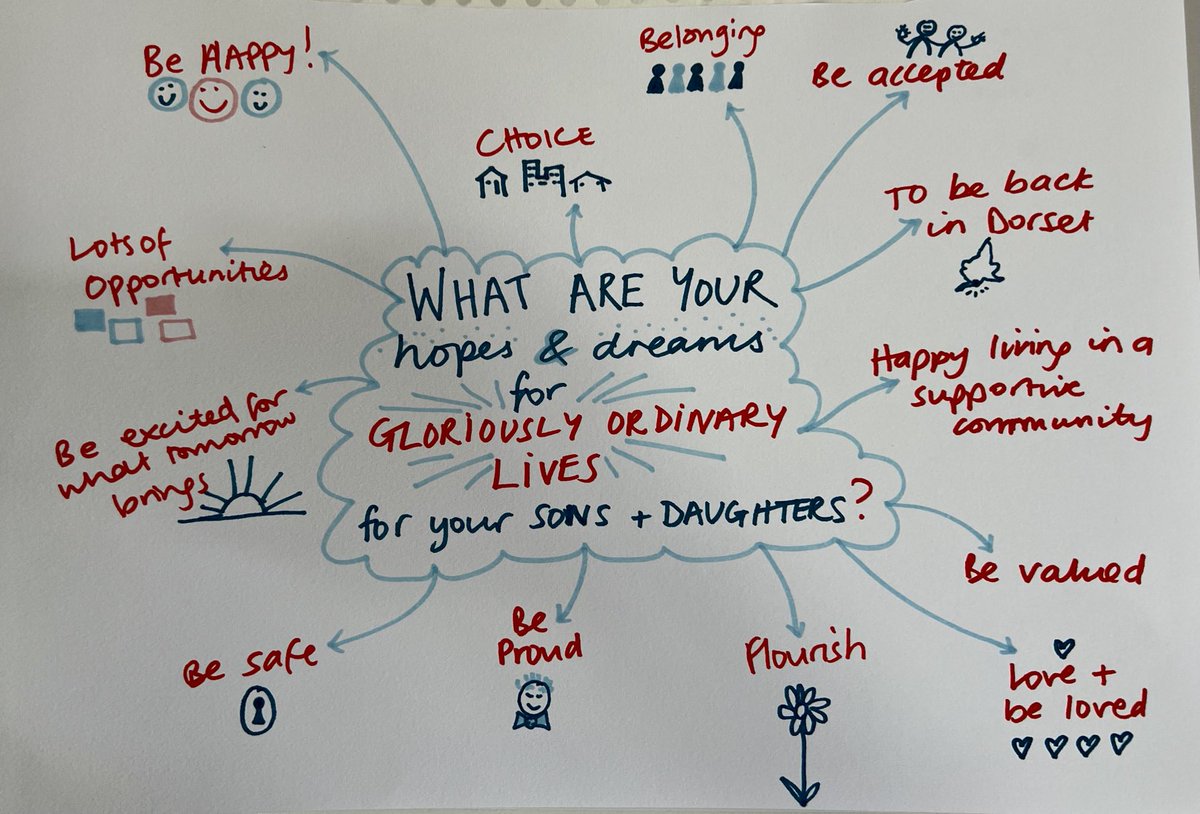 Be HAPPY!
Belonging
Be accepted
CHOICE
To be back
in Dorset
Lots of
opportunities
WHAT ARE YOUR
hopes & dreams
for
GLORIOUSLY ORDINARY
LIVES
for your SONS + DAUGHTERS?
Happy living in a
supportive
community
Be excited for
what tomorrow
brings
Be valued
Be safe
Be
Proud
Flourish
Love +
be loved